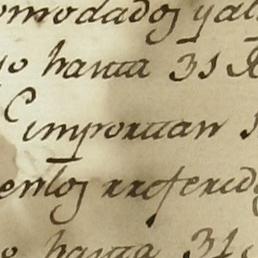 omodados y al
o hasta 31 R
Importan
entos rreferido
o hasta 31